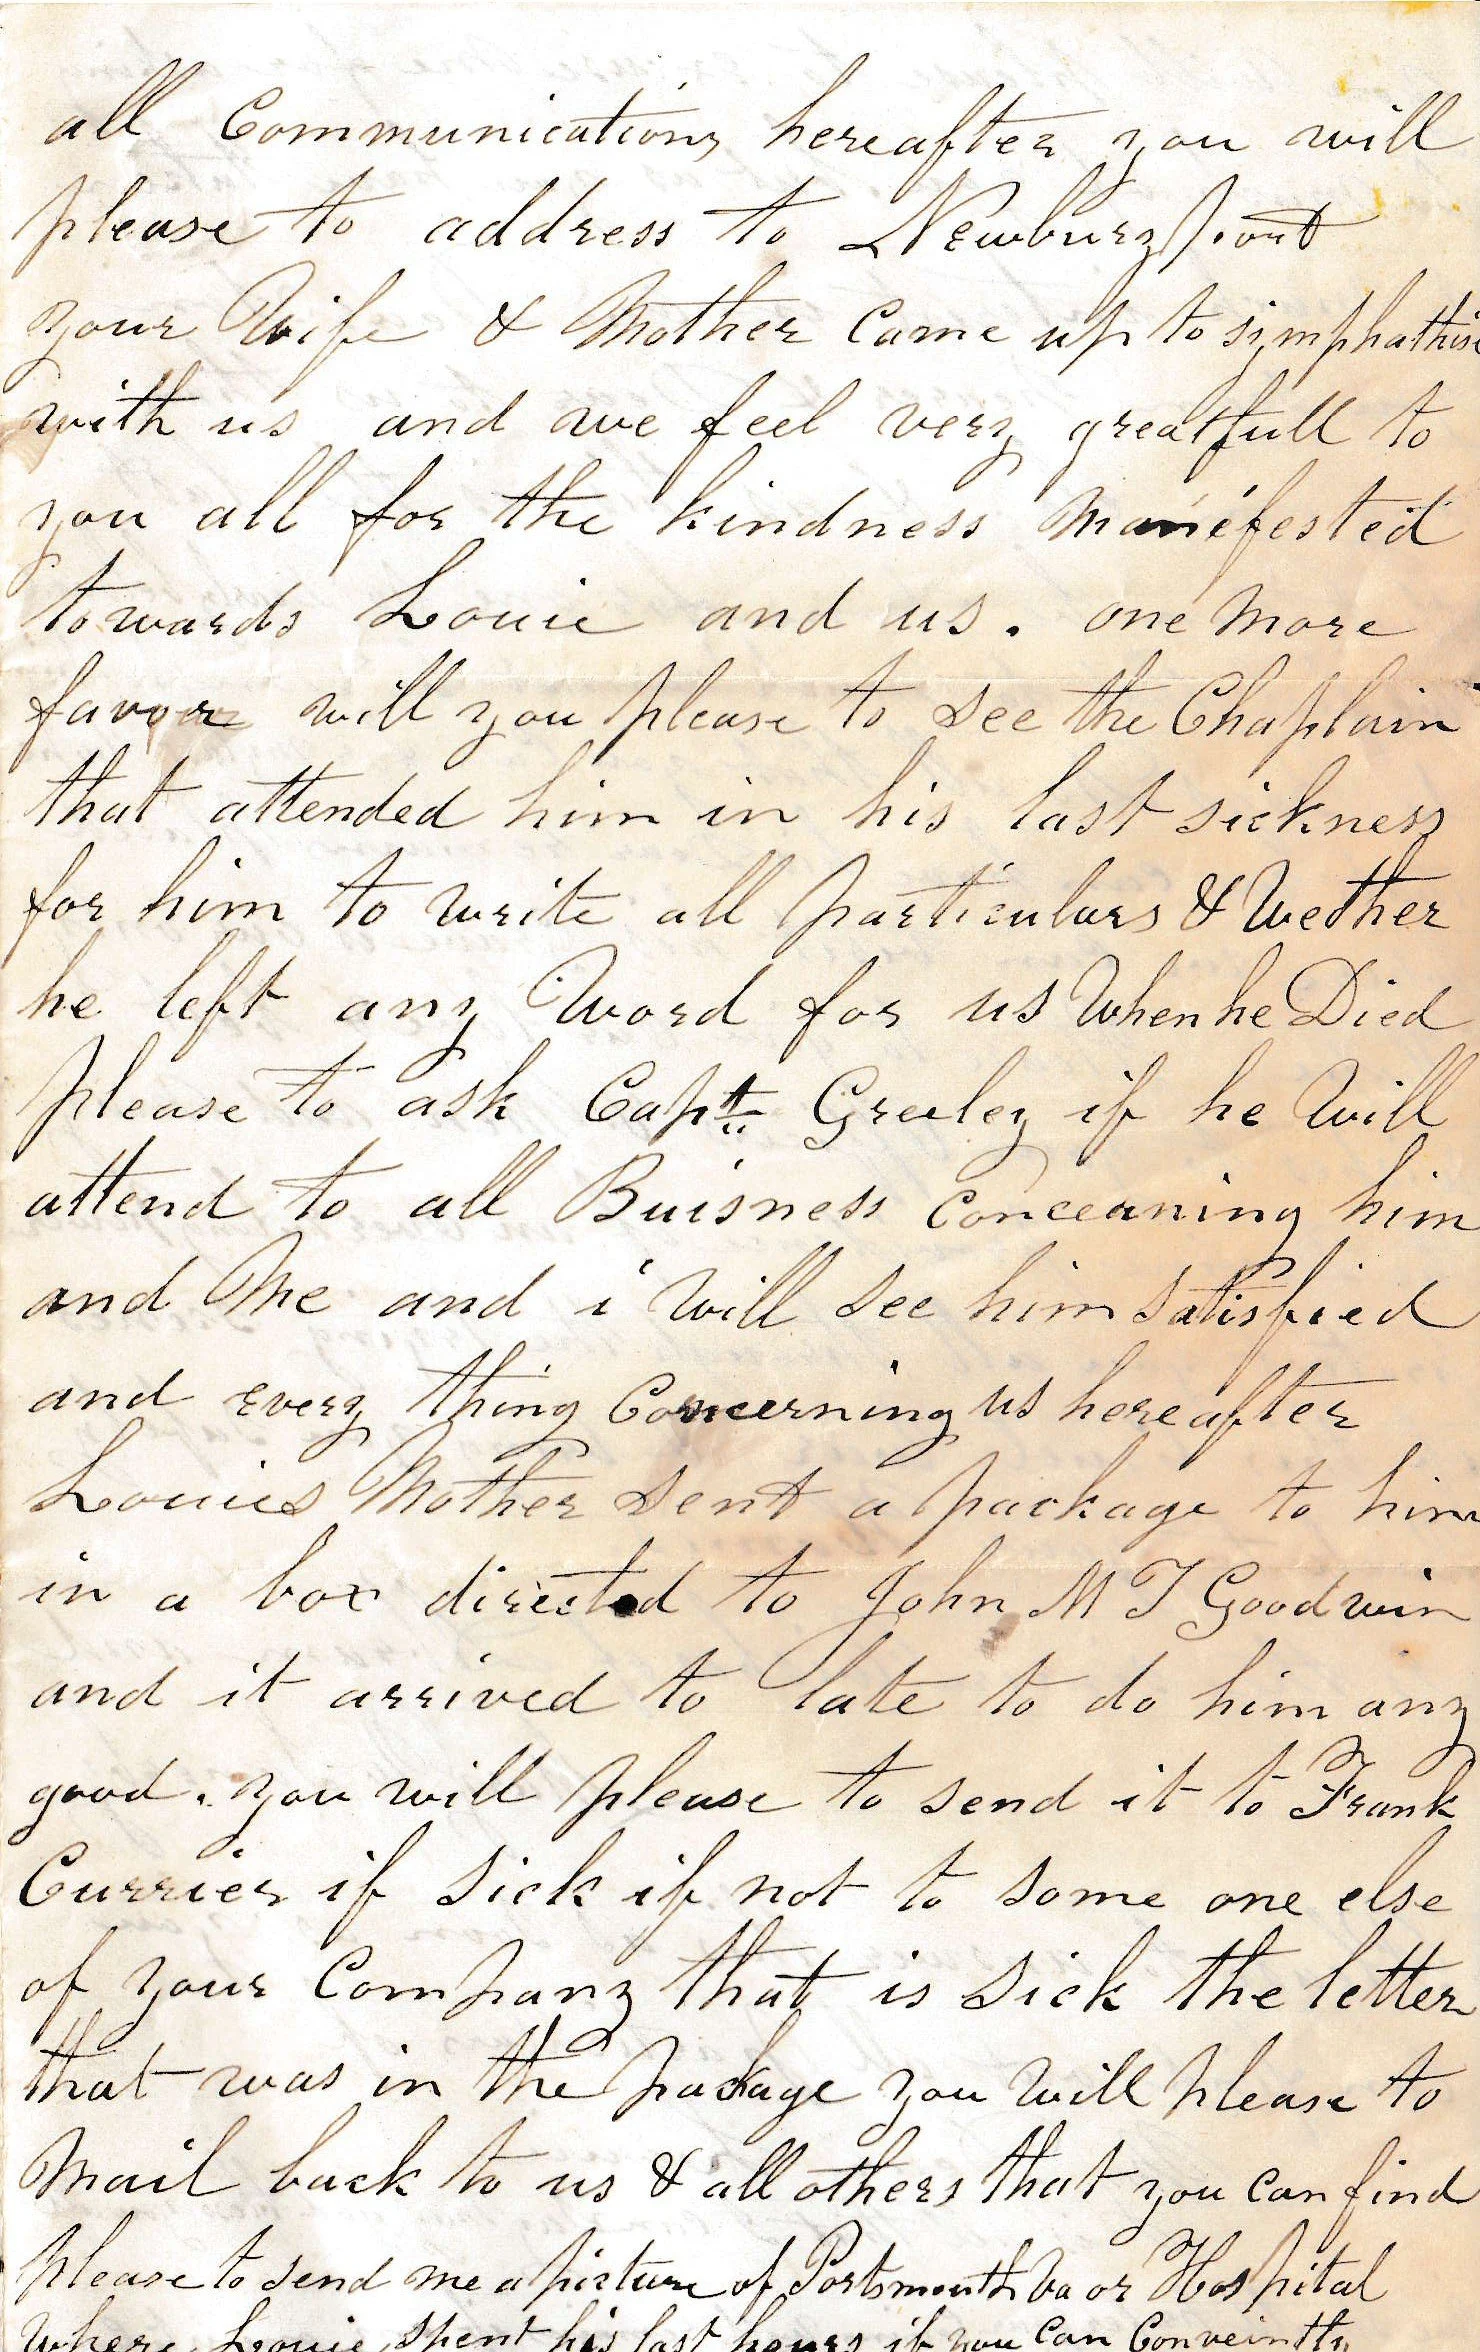 all Communications hereafter you will
please to address to Newburyport
your Wife & Mother Came up to simphathise
with us and we feel very greatfull to
you all for the kindness Manifested
towards Louie and us. one More
favor will you please to see the Chaplain
that attended him in his last sickness
for him to write all particulars & Wether
he left any Word for us When he Died
please to ask Capt Greeley if he Will
attend to all Buisness Concerning him
and Me and i Will see him satisfied
and every thing Concerning us hereafter
Louies Mother sent a package to him
in a box directed to John M T Goodwin
and it arrived to late to do him any
good. you will please to send it to Frank
Currier if sick if not to some one else
of your Company that is sick the letter
that was in the package you Will please to
Mail back to us & all others that you can find
please to send me a picture of Portsmouth Va or Hospital
Where Louie spent his last hours if you Can Conveintly